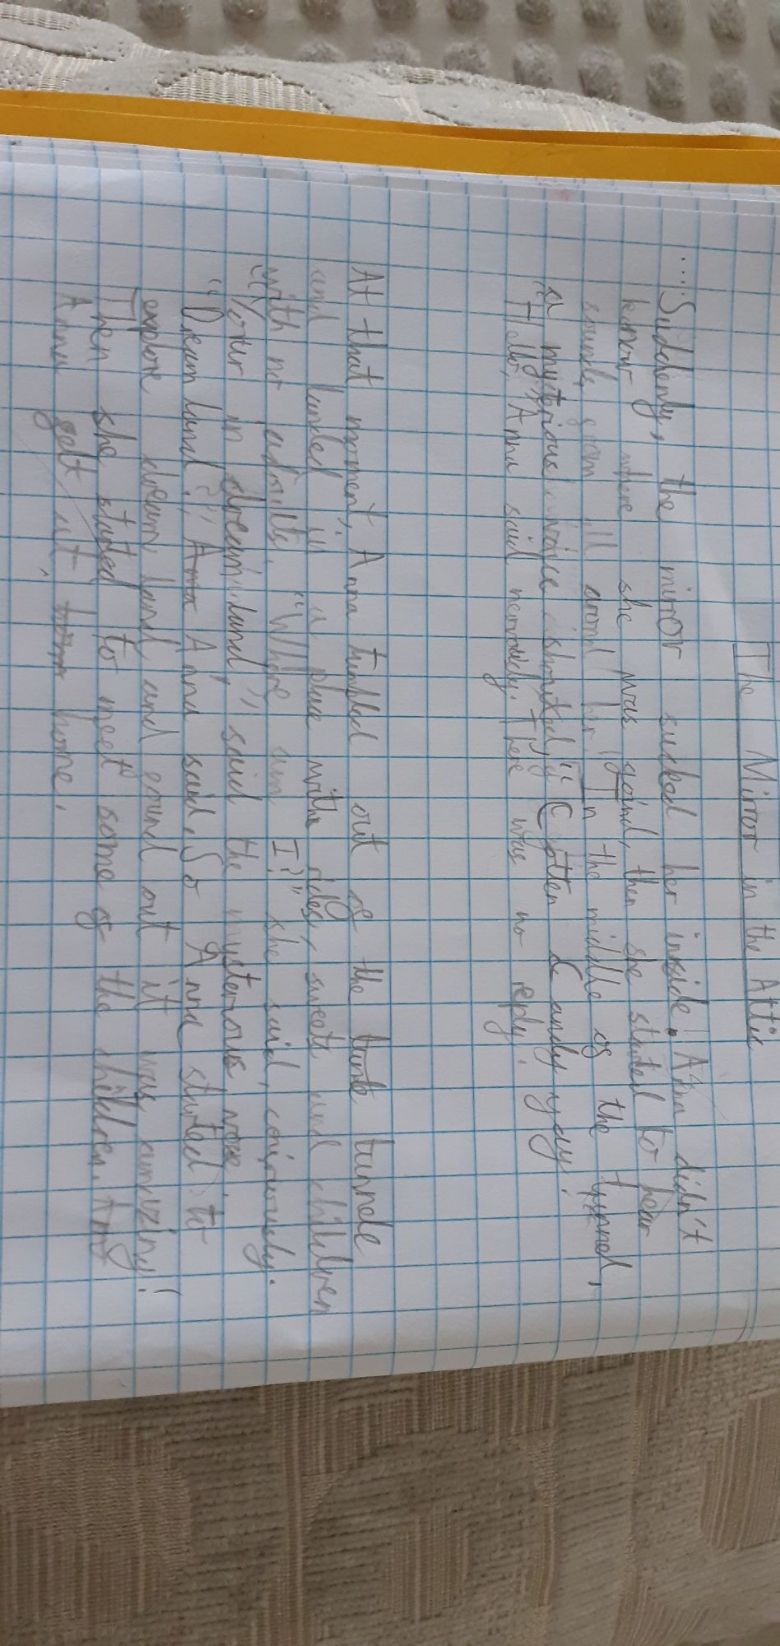 The Mirror in the Attic
...Suddenly, the mirror sucked her inside. Anna didn't
know where she was goind, then she started to hear
sounds from all around her. In the middle of the tunnel,
a mysterious voice shouted, "Cotten Candy yay!
"Hello", Anna said nervously. There was no reply.
At that moment, Anna tumbled out of the tunle tunnele
and landed in a place with rides, sweets and children
with no adults. "Where am I?" she said, coriously.
"Your in dream land," said the mysterious
"Dream land?" Anna said. So Anna started to
explore dream land and found out it was amazing!
Then she started to meet some of the children. And
Anna gelt at home.